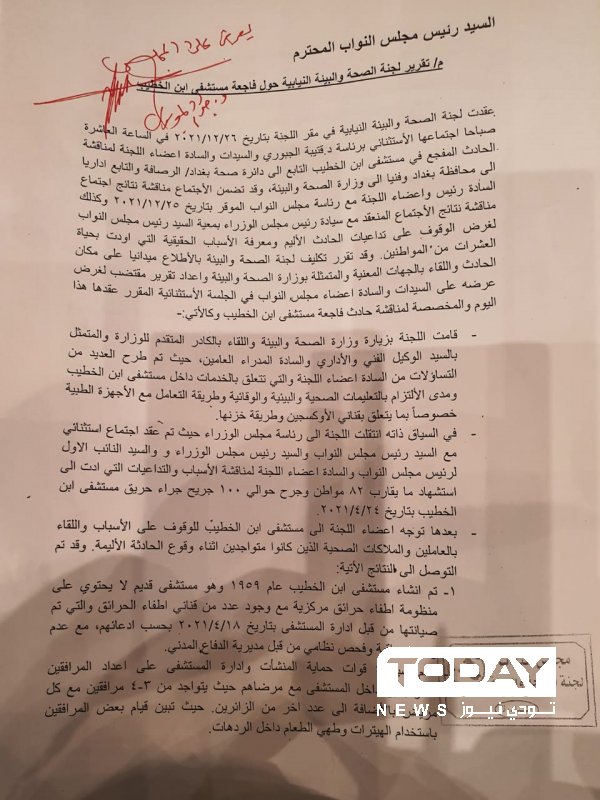 السيد رئيس مجلس النواب المحترم
م/ تقرير لجنة الصحة والبيئة النيابية حول فاجعة مستشفى ابن الخطيب
عقدت لجنة الصحة والبيئة النيابية في مقر اللجنة بتاريخ ٢٠٢١/١٢/٢٦ في الساعة العاشرة
صباحا اجتماعها الأستثنائي برئاسة د.قتيبة الجبوري والسيدات والسادة اعضاء اللجنة لمناقشة
الحادث المفجع في مستشفى ابن الخطيب التابع الى دائرة صحة بغداد/ الرصافة والتابع اداريا
الى محافظة بغداد وفنيا الى وزارة الصحة والبيئة، وقد تضمن الأجتماع مناقشة نتائج اجتماع
السادة رئيس واعضاء اللجنة مع رئاسة مجلس النواب الموقر بتاريخ ٢٠٢١/١٢/٢٥ وكذلك
مناقشة نتائج الأجتماع المنعقد مع سيادة رئيس مجلس الوزراء بمعية السيد رئيس مجلس النواب
لغرض الوقوف على تداعيات الحادث الأليم ومعرفة الأسباب الحقيقية التي اودت بحياة
العشرات من المواطنين. وقد تقرر تكليف لجنة الصحة والبيئة بالأطلاع ميدانيا على مكان
الحادث واللقاء بالجهات المعنية والمتمثلة بوزارة الصحة والبيئة واعداد تقرير مقتضب لغرض
عرضه على السيدات والسادة اعضاء مجلس النواب في الجلسة الأستثنائية المقرر عقدها هذا
اليوم والمخصصة لمناقشة حادث فاجعة مستشفى ابن الخطيب وكالأتي:-
- قامت اللجنة بزيارة وزارة الصحة والبيئة واللقاء بالكادر المتقدم للوزارة والمتمثل
بالسيد الوكيل الفني والأداري والسادة المدراء العامين، حيث تم طرح العديد من
التساؤلات من السادة اعضاء اللجنة والتي تتعلق بالخدمات داخل مستشفى ابن الخطيب
ومدى الألتزام بالتعليمات الصحية والبيئية والوقائية وطريقة التعامل مع الأجهزة الطبية
خصوصاً بما يتعلق بقناني الأوكسجين وطريقة خزنها.
- في السياق ذاته انتقلت اللجنة الى رئاسة مجلس الوزراء حيث تم عقد اجتماع استثنائي
مع السيد رئيس مجلس النواب والسيد رئيس مجلس الوزراء و والسيد النائب الاول
لرئيس مجلس النواب والسادة اعضاء اللجنة لمناقشة الأسباب والتداعيات التي ادت الى
استشهاد ما يقارب ٨٢ مواطن وجرح حوالي ١٠٠ جريح جراء حريق مستشفى ابن
الخطيب بتاريخ ٢٠٢١/٤/٢٤.
- بعدها توجه اعضاء اللجنة الى مستشفى ابن الخطيب للوقوف على الأسباب واللقاء
بالعاملين والملاكات الصحية الذين كانوا متواجدين اثناء وقوع الحادثة الأليمة. وقد تم
التوصل الى النتائج الأتية:
١- تم انشاء مستشفى ابن الخطيب عام ١٩٥٩ وهو مستشفى قديم لا يحتوي على
منظومة اطفاء حرائق مركزية مع وجود عدد من قناني اطفاء الحرائق والتي تم
صيانتها من قبل ادارة المستشفى بتاريخ ٢٠٢١/٤/١٨ بحسب ادعائهم، مع عدم
وفحص نظامي من قبل مديرية الدفاع المدني.
قوات حماية المنشآت وادارة المستشفى على اعداد المرافقين
داخل المستشفى مع مرضاهم حيث يتواجد من ٣-٤ مرافقين مع كل
عدد اخر من الزائرين. حيث تبين قيام بعض المرافقين
باستخدام الهيترات وطهي الطعام داخل الردهات.
TODAY
NEWS تودي نيوز
لجنة